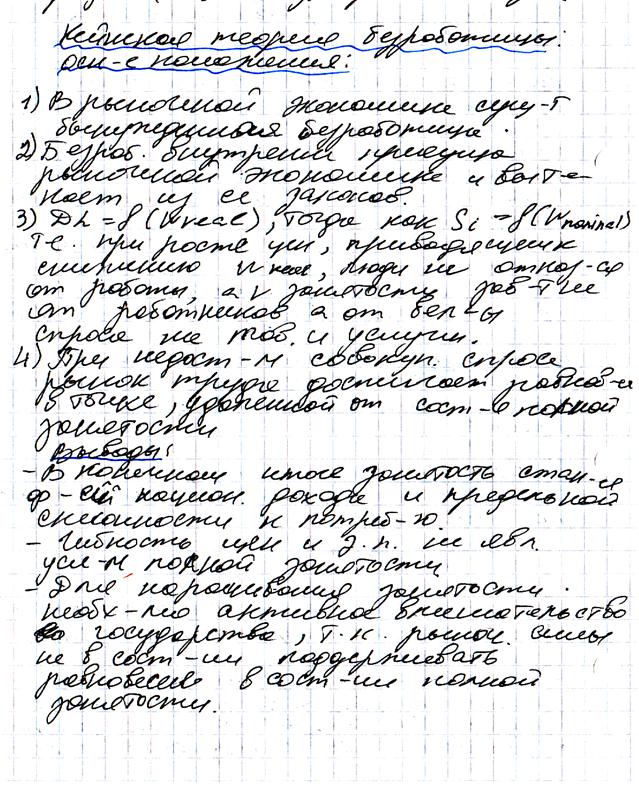 Кейнская теория безработицы:
осн-е положения:
1) В рыночной экономике сущ-т
вынужденная безработица.
2) Безраб. внутренне присуща
рыночной экономике и выте-
кает из ее законов.
3) DL = f (Wreal), тогда как SL = f (Wnominal)
т.е. при росте цен, приводящем к
снижению Wreal, люди не отказ-ся
от работы, а V занятости зав-т не
от работников а от вел-ы
спроса на тов. и услуги.
4) При недост-м совокуп. спросе
рынок труда достигает равнов-я
в точке, удаленной от сост-я полной
занятости
Выводы:
- В конечном итоге занятость стан-ся
ф-ей национ. дохода и предельной
склонности к потреб-ю.
- Гибкость цен и з.п. не явл.
усл-м полной занятости
- Для наращивания занятости
необх-мо активное вмешательство
государства, т.к. рыноч. силы
не в сост-ии поддерживать
равновесие в сост-ии полной
занятости.